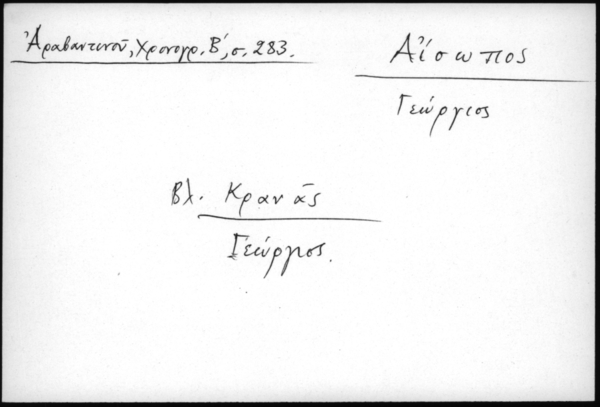 Ἀραβαντινοῦ, Χρονογρ. Β΄, σ. 283.
Αἴσωπος
Γεώργιος
Βλ. Κρανᾶς
Γεώργιος.